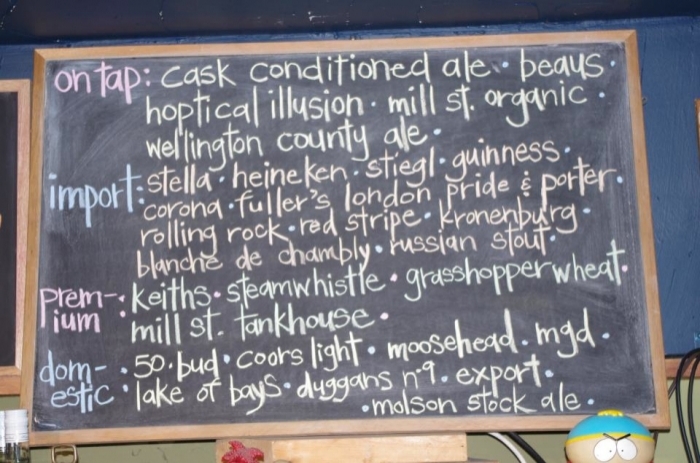 on tap: cask conditioned ale · beaus ·
hoptical illusion · mill st. organic ·
wellington county ale ·
import: stella · heineken · stiegl · guinness ·
corona · fuller's london pride & porter ·
rolling rock · red stripe · kronenburg ·
blanche de chambly · russian stout ·
prem- : keiths · steamwhistle · grasshopper wheat ·
ium mill st. tankhouse ·
dom- : 50 · bud · coors light · moosehead · mgd ·
estic lake of bays · duggans nº9 · export ·
· molson stock ale ·